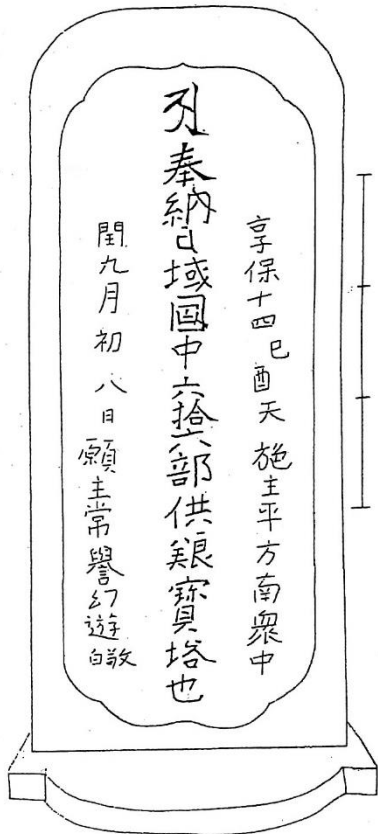 享保十四巳酉天 施主平方南衆中
奉納日域國中六拾六部供養寶塔也
閏九月初八日願主常譽幻遊敬白